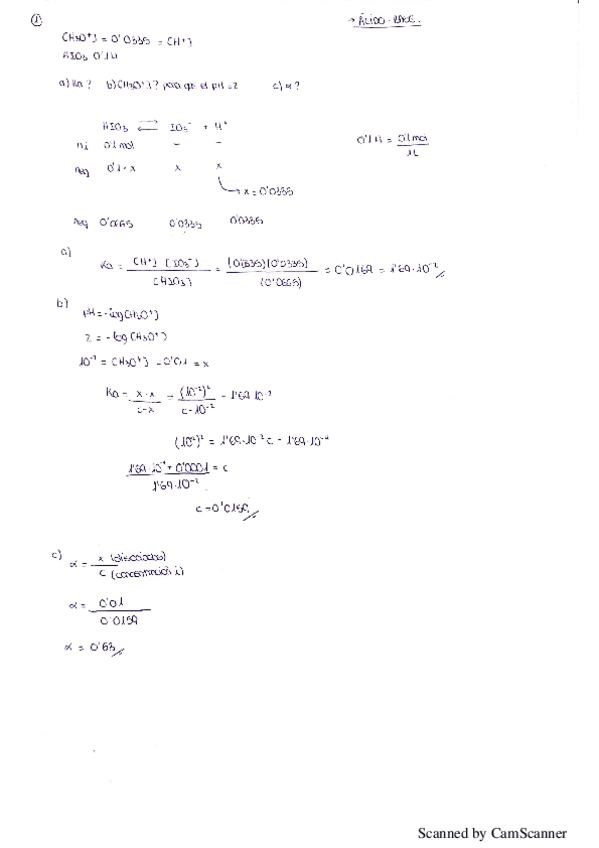 ①
→ ÁCIDO-BASE:
[H3O+] = 0'0335 = [H+]
HIO3 0'1M
a) Ka? b) [H3O+]? para que el pH=2 c) α?
HIO3 ⇌ IO3⁻ + H⁺
ni 0'1mol - -
neq 0'1-x x x
0'1M = 0'1mol / 1L
x = 0'0335
neq 0'0665 0'0335 0'0335
a)
Ka = [H+] [IO3⁻] / [HIO3] = (0'0335)(0'0335) / (0'0665) = 0'0169 = 1'69·10⁻²
b)
pH = -log[H3O+]
2 = -log[H3O+]
10⁻² = [H3O+] = 0'01 = x
Ka = x·x / c-x = (10⁻²)² / c-10⁻² = 1'69·10⁻²
(10⁻²)² = 1'69·10⁻²c - 1'69·10⁻⁴
1'69·10⁻⁴ + 0'0001 / 1'69·10⁻² = c
c = 0'0159
c)
α = x (disociados) / c (concentración i)
α = 0'01 / 0'0159
α = 0'63
Scanned by CamScanner